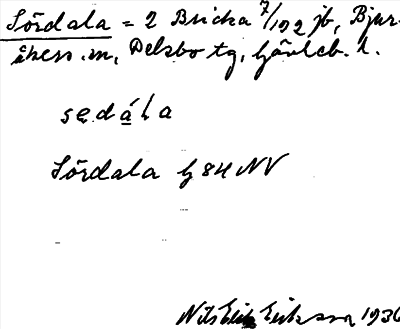 Sördala = 2 Bricka 7/192 jb, Bjur-
åkers sn, Delsbo tg, Gävleb. l.
sedála
Sördala bg 84 NV
Nils Erik Eriksson 1936